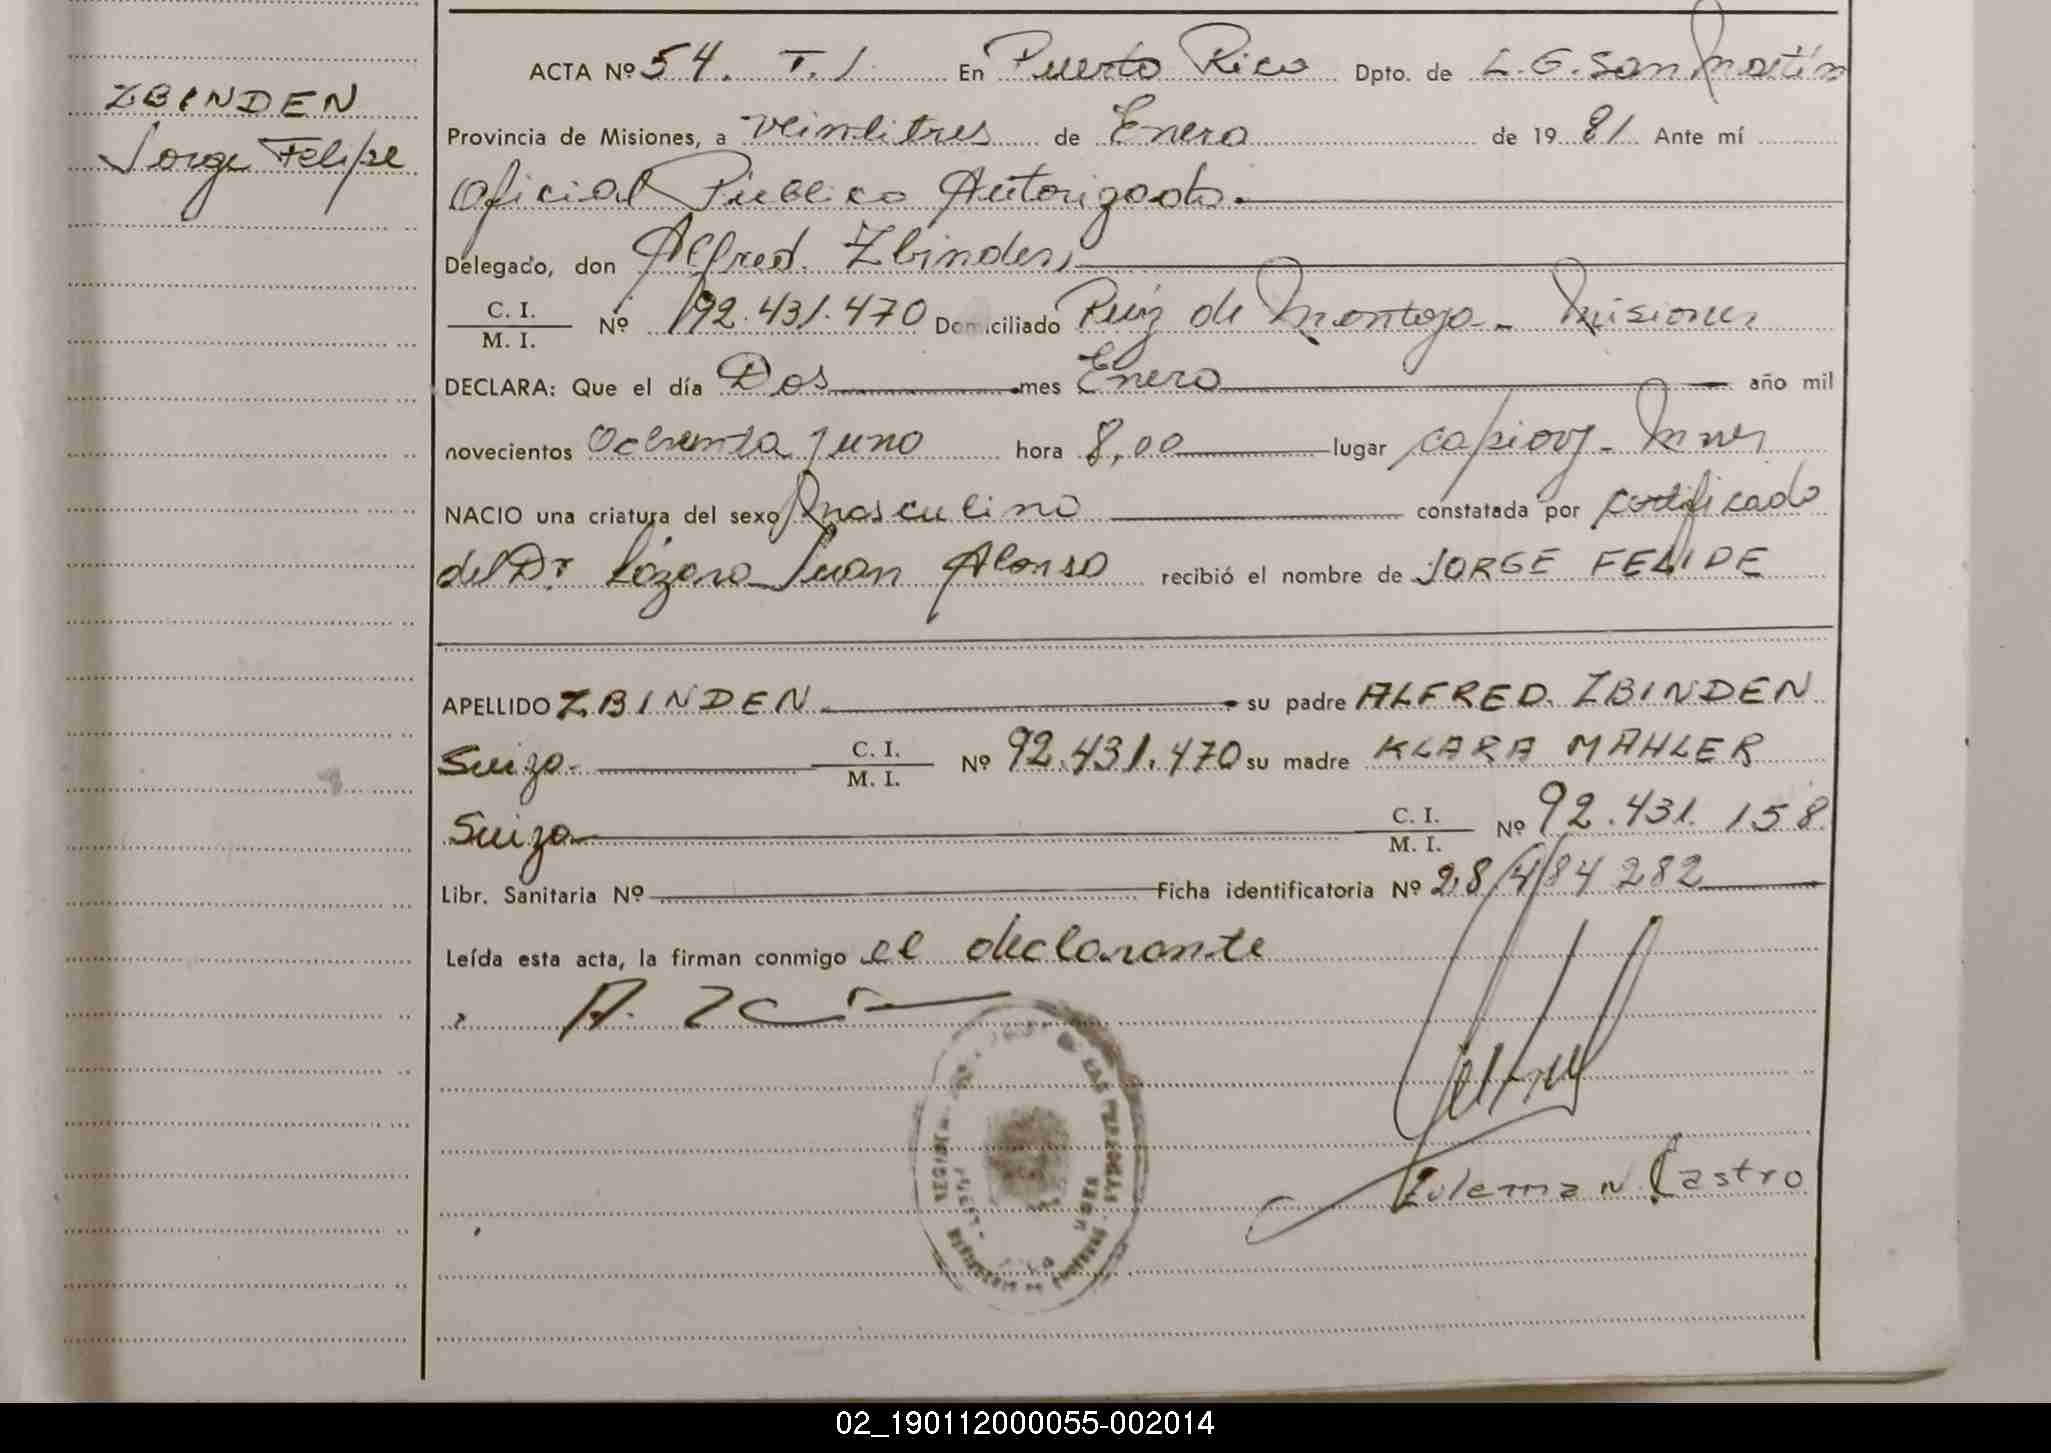 ZBINDEN
Jorge Felipe
ACTA Nº 54. T. 1. En Puerto Rico Dpto. de L. G. San Martín
Provincia de Misiones, a veintitres de Enero de 1981 Ante mí
Oficial Público Autorizado.
Delegado, don Alfred. Zbinden,
C. I.
M. I. Nº 92.431.470 Domiciliado Ruiz de Montoya - Misiones
DECLARA: Que el día Dos mes Enero año mil
novecientos Ochenta y uno hora 8,00 lugar Capiovy - Mnes
NACIO una criatura del sexo Masculino constatada por certificado
del Dr Lázaro Juan Alonso recibió el nombre de JORGE FELIPE
APELLIDO ZBINDEN su padre ALFRED. ZBINDEN
Suizo. C. I.
M. I. Nº 92.431.470 su madre KLARA MAHLER
Suiza C. I.
M. I. Nº 92.431.158
Libr. Sanitaria Nº Ficha identificatoria Nº 28/4/84 282
Leída esta acta, la firman conmigo el declarante
Zulema N. Castro
02_190112000055-002014